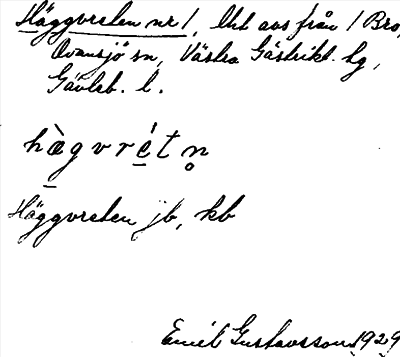 Häggvreten nr 1, lht avs från 1 Bro,
Ovansjö sn, Västra Gästrikl. hg,
Gävleb. l.
hàgvrétn̥
Häggvreten jb, kb
Emil Gustavsson 1929